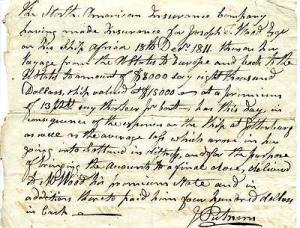 The North American Insurance Company
having made Insurance for Joseph Wood Esqr
on his Ship Africa 18th Decr 1811 then on her
voyage from the UStates to Europe and back to the
UStates to amount of $8000 say eight thousand
Dollars, Ship valued at $15000 at a premium
of 13 say thirteen per cent has this day, in
consequence of the expenses on the Ship at
as well as the average loss which arose in her
going into in distress, and for the purpose
of bringing the accounts to a final close, delivered
to Mr Wood his premium Note and in
addition hereto paid him four hundred dollars
in cash